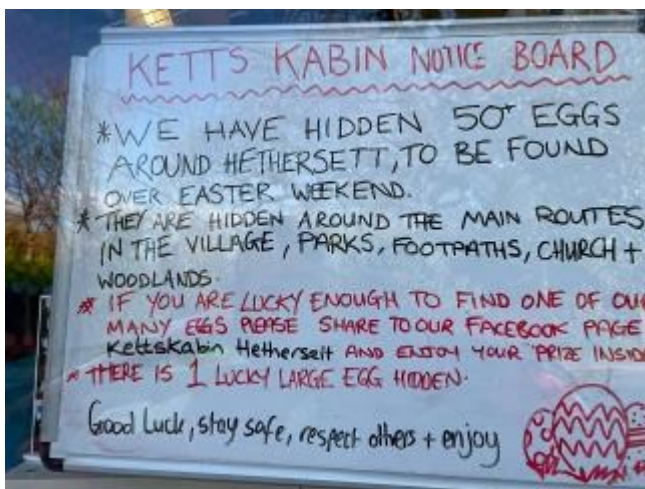 KETTS KABIN NOTICE BOARD
*WE HAVE HIDDEN 50+ EGGS
AROUND HETHERSETT, TO BE FOUND
OVER EASTER WEEKEND.
* THEY ARE HIDDEN AROUND THE MAIN ROUTES
IN THE VILLAGE, PARKS, FOOTPATHS, CHURCH +
WOODLANDS.
* IF YOU ARE LUCKY ENOUGH TO FIND ONE OF OUR
MANY EGGS PLEASE SHARE TO OUR FACEBOOK PAGE
KettsKabin Hethersett AND ENJOY YOUR PRIZE INSIDE
* THERE IS 1 LUCKY LARGE EGG HIDDEN.
Good Luck, stay safe, respect others + enjoy